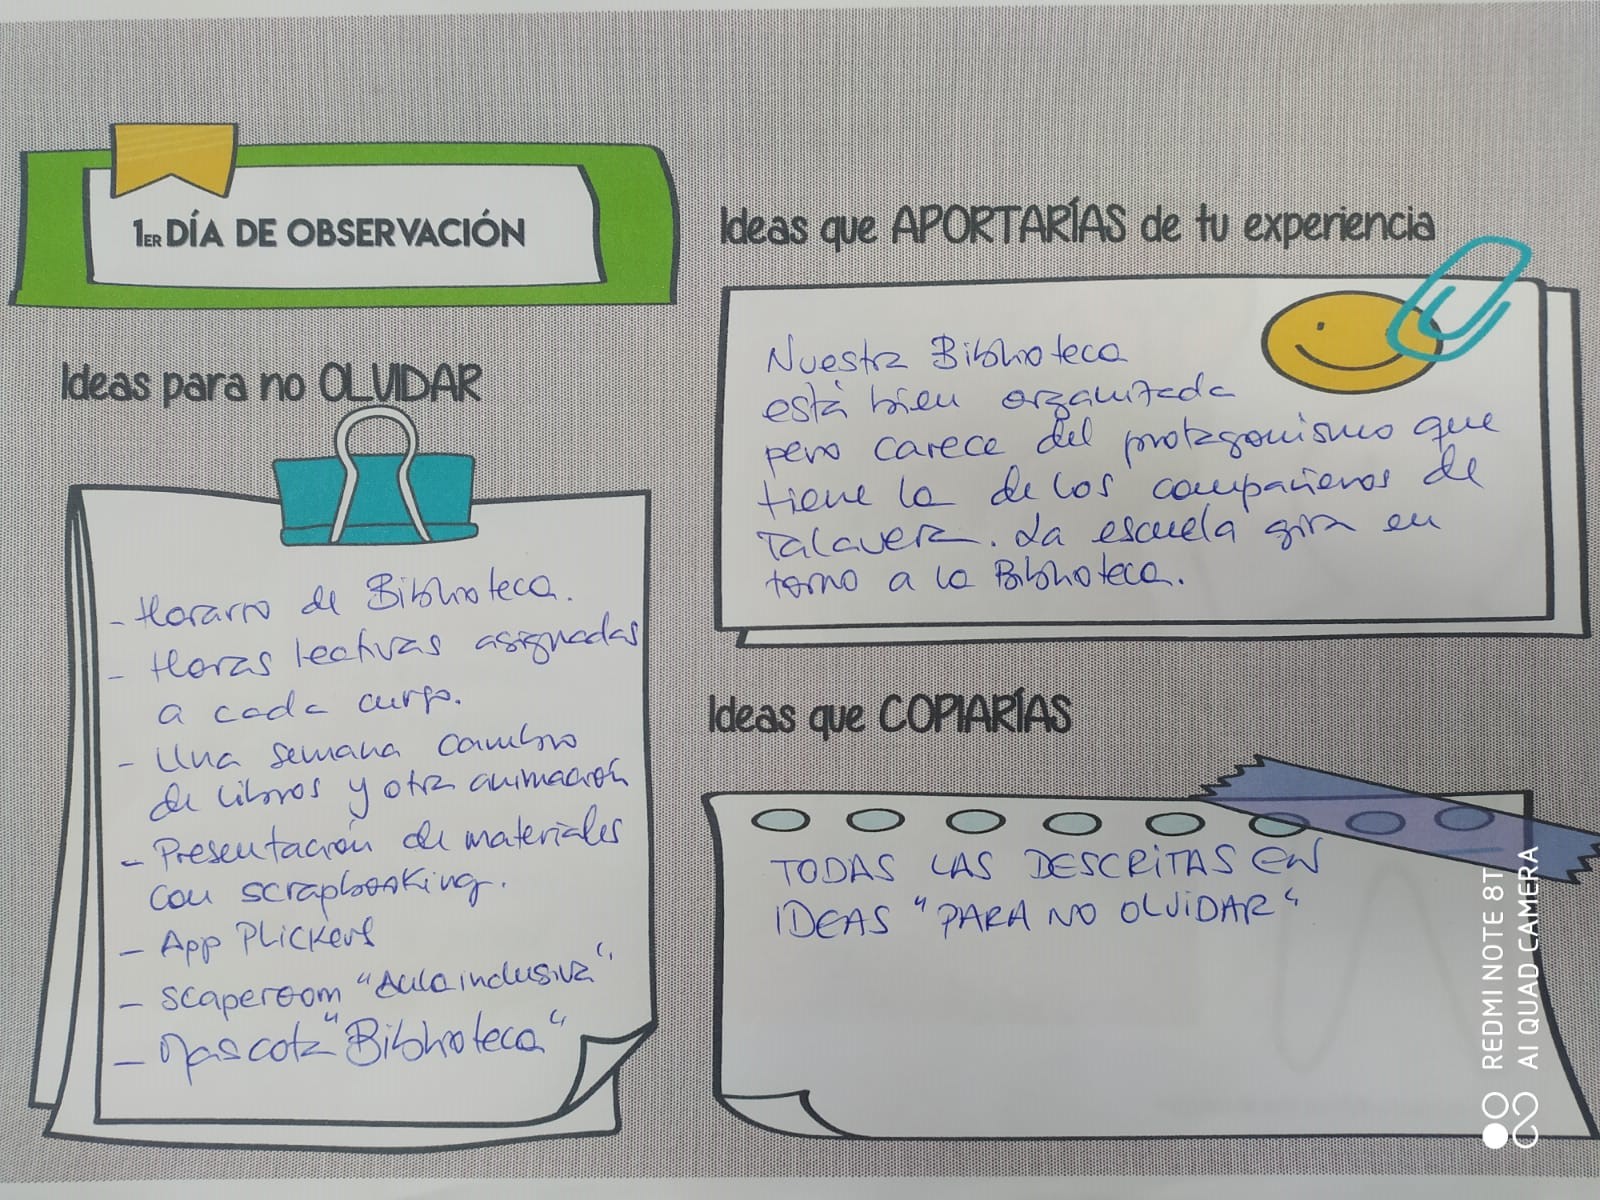 1ER DÍA DE OBSERVACIÓN
Ideas para no OLVIDAR
- Horario de Biblioteca.
- Horas lectivas asignadas
a cada curso.
- Una semana cambio
de libros y otra animación
- Presentación de materiales
con scrapbooking.
- App Plickers
- scaperoom "Aula inclusiva".
- Mascota "Biblioteca"
Ideas que APORTARÍAS de tu experiencia
Nuestra Biblioteca
está bien organizada
pero carece del protagonismo que
tiene la de los compañeros de
Talavera. La escuela gira en
torno a la Biblioteca.
Ideas que COPIARÍAS
TODAS LAS DESCRITAS EN
IDEAS "PARA NO OLVIDAR"
REDMI NOTE 8T
AI QUAD CAMERA